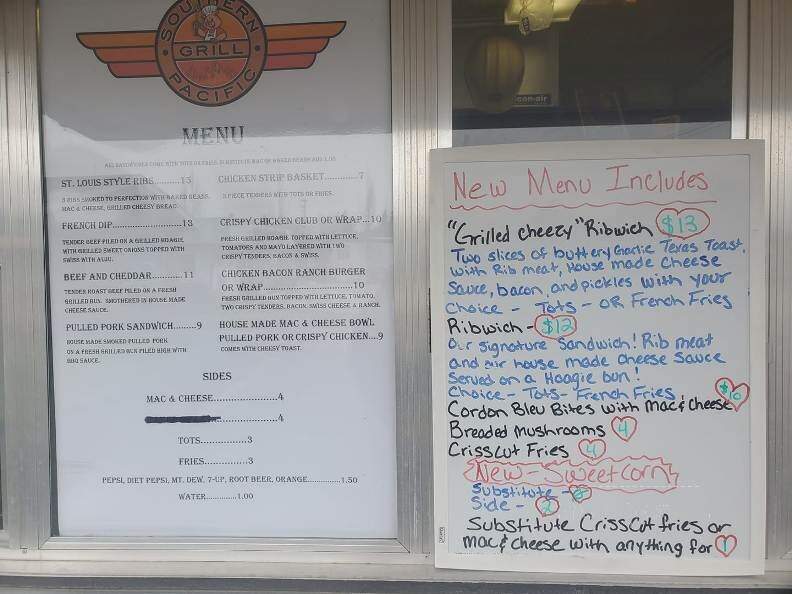 SOUTHERN
GRILL
PACIFIC
con-air
MENU
ALL SANDWICHES COME WITH TOTS OR FRIES. SUBSTITUTE MAC OR BAKED BEANS ADD 1.00
ST. LOUIS STYLE RIBS.........13
3 RIBS SMOKED TO PERFECTION WITH BAKED BEANS,
MAC & CHEESE, GRILLED CHEESY BREAD.
FRENCH DIP....................13
TENDER BEEF PILED ON A GRILLED HOAGIE
WITH GRILLED SWEET ONIONS TOPPED WITH
SWISS WITH AUJU.
BEEF AND CHEDDAR...............11
TENDER ROAST BEEF PILED ON A FRESH
GRILLED BUN. SMOTHERED IN HOUSE MADE
CHEESE SAUCE.
PULLED PORK SANDWICH.........9
HOUSE MADE SMOKED PULLED PORK
ON A FRESH GRILLED BUN PILED HIGH WITH
BBQ SAUCE.
CHICKEN STRIP BASKET............7
3 PIECE TENDERS WITH TOTS OR FRIES.
CRISPY CHICKEN CLUB OR WRAP...10
FRESH GRILLED HOAGIE. TOPPED WITH LETTUCE,
TOMATOES AND MAYO LAYERED WITH TWO
CRISPY TENDERS, BACON & SWISS.
CHICKEN BACON RANCH BURGER
OR WRAP..........................10
FRESH GRILLED BUN TOPPED WITH LETTUCE, TOMATO,
TWO CRISPY TENDERS, BACON, SWISS CHEESE & RANCH.
HOUSE MADE MAC & CHEESE BOWL
PULLED PORK OR CRISPY CHICKEN...9
COMES WITH CHEESY TOAST.
SIDES
MAC & CHEESE................4
................4
TOTS..............3
FRIES..............3
PEPSI, DIET PEPSI, MT. DEW, 7-UP, ROOT BEER, ORANGE............1.50
WATER............1.00
New Menu Includes
"Grilled cheezy" Ribwich $13
Two slices of buttery Garlic Texas Toast,
with Rib meat, House made Cheese
Sauce, bacon, and pickles with your
Choice - Tots - OR French Fries
Ribwich - $12
Our signature Sandwich! Rib meat
and our house made cheese Sauce
Served on a Hoagie bun!
Choice - Tots - French Fries
Cordon Bleu Bites with Mac & Cheese $10
Breaded Mushrooms 4
CrissCut Fries 4
New - Sweetcorn
Substitute - 2
Side - 2
Substitute CrissCut fries or
mac & cheese with anything for 1